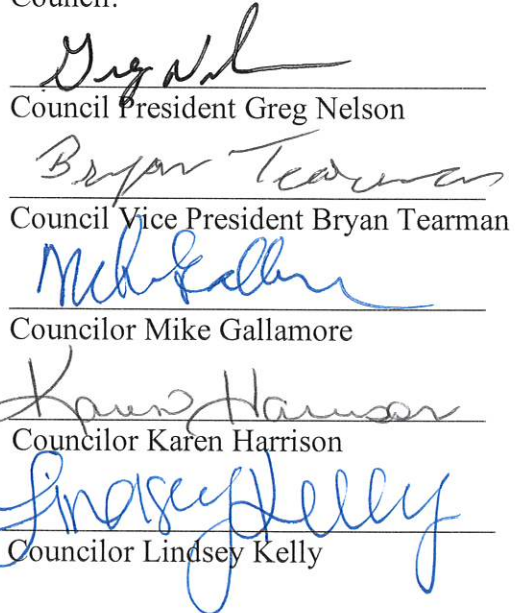 Council:
Greg Nel
Council President Greg Nelson
Bryan Tearman
Council Vice President Bryan Tearman
Councilor Mike Gallamore
Karen Harrison
Councilor Karen Harrison
Lindsey Kelly
Councilor Lindsey Kelly